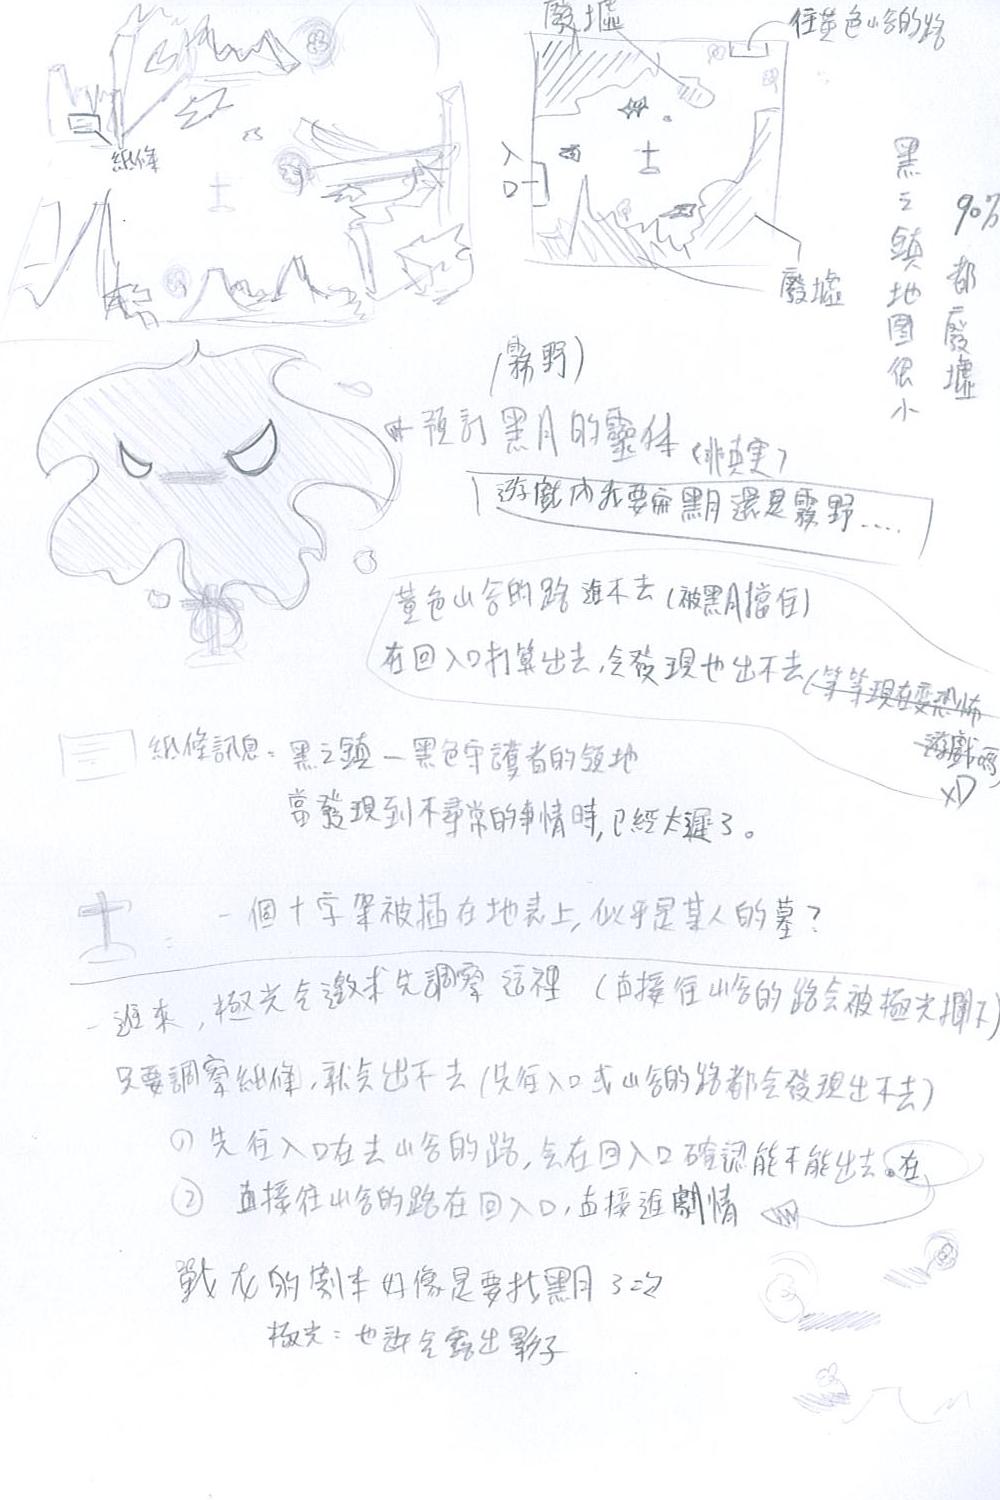 廢墟
往黃色山谷的路
紙條
入口
廢墟
黑之鎮地圖很小
90%都廢墟
(霧野)
預訂黑月的靈体(非真實)
遊戲內我要用黑月還是霧野....
黃色山谷的路進不去(被黑月擋住)
在回入口打算出去,會發現也出不去(等等現在變恐怖
遊戲嗎
XD
紙條訊息:黑之鎮-黑色守護者的領地
當發現到不尋常的事情時,已經太遲了。
一個十字架被插在地表上,似乎是某人的墓?
一進來,極光會邀求先調察這裡(直接往山谷的路會被極光攔下)
只要調察紙條,就會出不去(先往入口或山谷的路都會發現出不去)
① 先往入口在去山谷的路,會在回入口確認能不能出去。在
② 直接往山谷的路在回入口,直接進劇情
戰友的劇本好像是要找黑月3次
極光:也許会露出影子